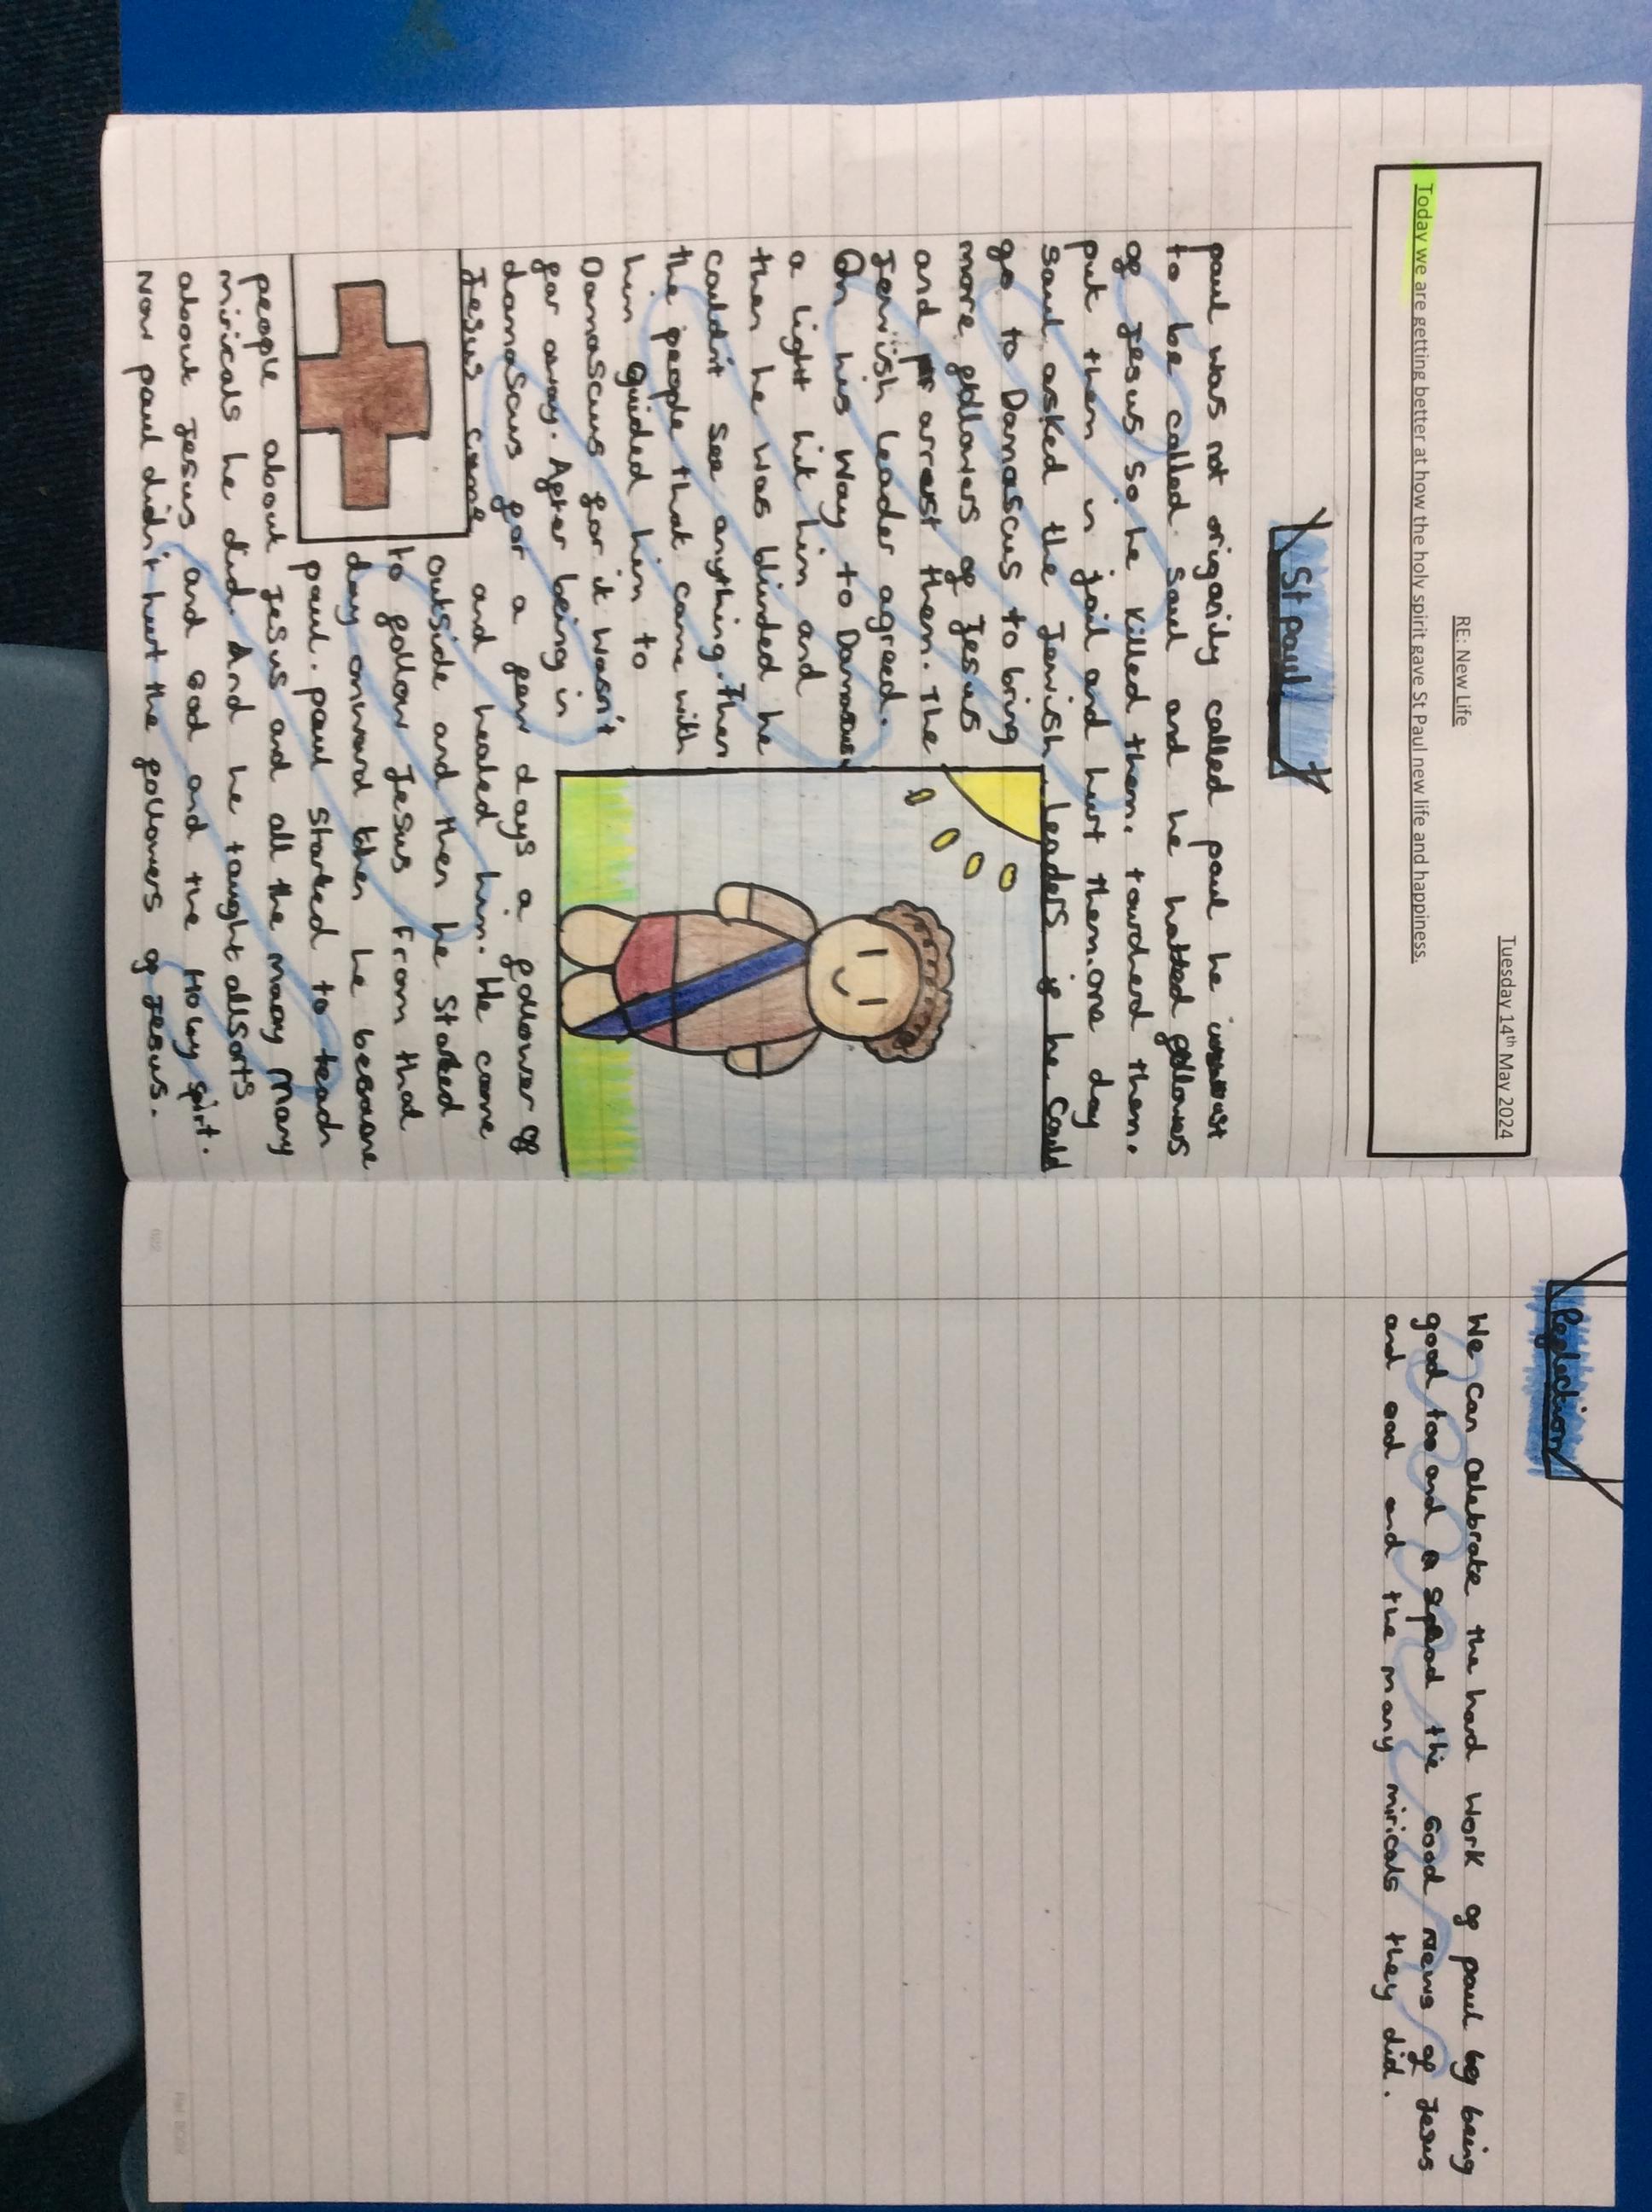 Tuesday 14th May 2024
RE: New Life
Today we are getting better at how the holy spirit gave St Paul new life and happiness.
St paul
paul was not origanily called paul he
to be called saul and he hatted gollowes
of Jesus so he killed them. towched them.
put them in jail and hurt them. one day
saul asked the Jewish leaders if he could
go to Damascus to bring
more gollowers of Jesus
and arrest them. the
Jewish leader agreed.
On his way to Damascus
a light hit him and
then he was blinded he
couldn't see anything. Then
the people that came with
him guided him to
Damascus for it wasn't
far away. After being in
damascus for a few days a gollower of
Jesus came and healed him. He came
outside and then he started
to gollow Jesus From that
day onward then he became
paul. paul started to teach
people about Jesus and all the many many
miricals he did. And he taught allsorts
about Jesus and God and the Holy spirt.
Now paul didn't hurt the gollowers of Jesus.
Reflection
We can celebrate the hard work of paul by being
good too and a spread the Good News of Jesus
and God and the many miricals they did.